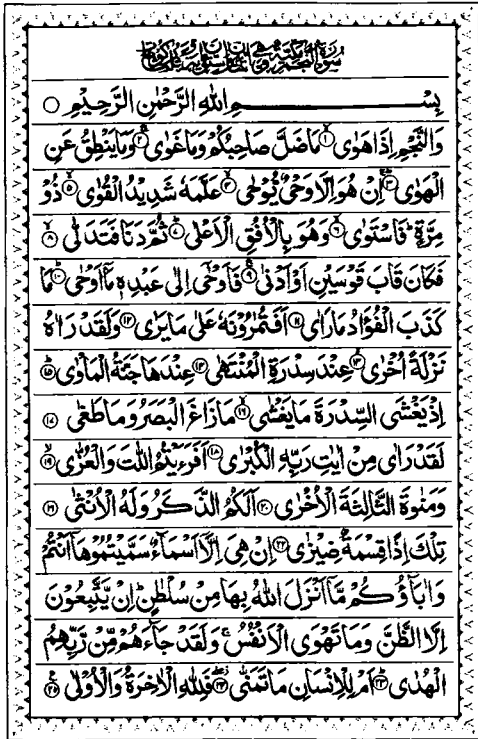 بِسْمِ اللهِ الرَّحْمٰنِ الرَّحِيْمِ ○
وَالنَّجْمِ اِذَا هَوٰى ۱ مَا ضَلَّ صَاحِبُكُمْ وَمَا غَوٰى ۲ وَمَا يَنْطِقُ عَنِ
الْهَوٰى ۳ اِنْ هُوَ اِلَّا وَحْىٌ يُّوْحٰى ۴ عَلَّمَهٗ شَدِيْدُ الْقُوٰى ۵ ذُوْ
مِرَّةٍ فَاسْتَوٰى ۶ وَهُوَ بِالْاُفُقِ الْاَعْلٰى ۷ ثُمَّ دَنَا فَتَدَلّٰى ۸
فَكَانَ قَابَ قَوْسَيْنِ اَوْ اَدْنٰى ۹ فَاَوْحٰى اِلٰى عَبْدِهٖ مَا اَوْحٰى ۱۰ مَا
كَذَبَ الْفُؤَادُ مَا رَاٰى ۱۱ اَفَتُمٰرُوْنَهٗ عَلٰى مَا يَرٰى ۱۲ وَلَقَدْ رَاٰهُ
نَزْلَةً اُخْرٰى ۱۳ عِنْدَ سِدْرَةِ الْمُنْتَهٰى ۱۴ عِنْدَهَا جَنَّةُ الْمَاْوٰى ۱۵
اِذْ يَغْشَى السِّدْرَةَ مَا يَغْشٰى ۱۶ مَا زَاغَ الْبَصَرُ وَمَا طَغٰى ۱۷
لَقَدْ رَاٰى مِنْ اٰيٰتِ رَبِّهِ الْكُبْرٰى ۱۸ اَفَرَءَيْتُمُ اللّٰتَ وَالْعُزّٰى ۱۹
وَمَنٰوةَ الثَّالِثَةَ الْاُخْرٰى ۲۰ اَلَكُمُ الذَّكَرُ وَلَهُ الْاُنْثٰى ۲۱
تِلْكَ اِذًا قِسْمَةٌ ضِيْزٰى ۲۲ اِنْ هِىَ اِلَّا اَسْمَآءٌ سَمَّيْتُمُوْهَا اَنْتُمْ
وَاٰبَآؤُكُمْ مَّا اَنْزَلَ اللهُ بِهَا مِنْ سُلْطٰنٍ اِنْ يَّتَّبِعُوْنَ
اِلَّا الظَّنَّ وَمَا تَهْوَى الْاَنْفُسُ وَلَقَدْ جَآءَهُمْ مِّنْ رَّبِّهِمُ
الْهُدٰى ۲۳ اَمْ لِلْاِنْسَانِ مَا تَمَنّٰى ۲۴ فَلِلّٰهِ الْاٰخِرَةُ وَالْاُوْلٰى ۲۵